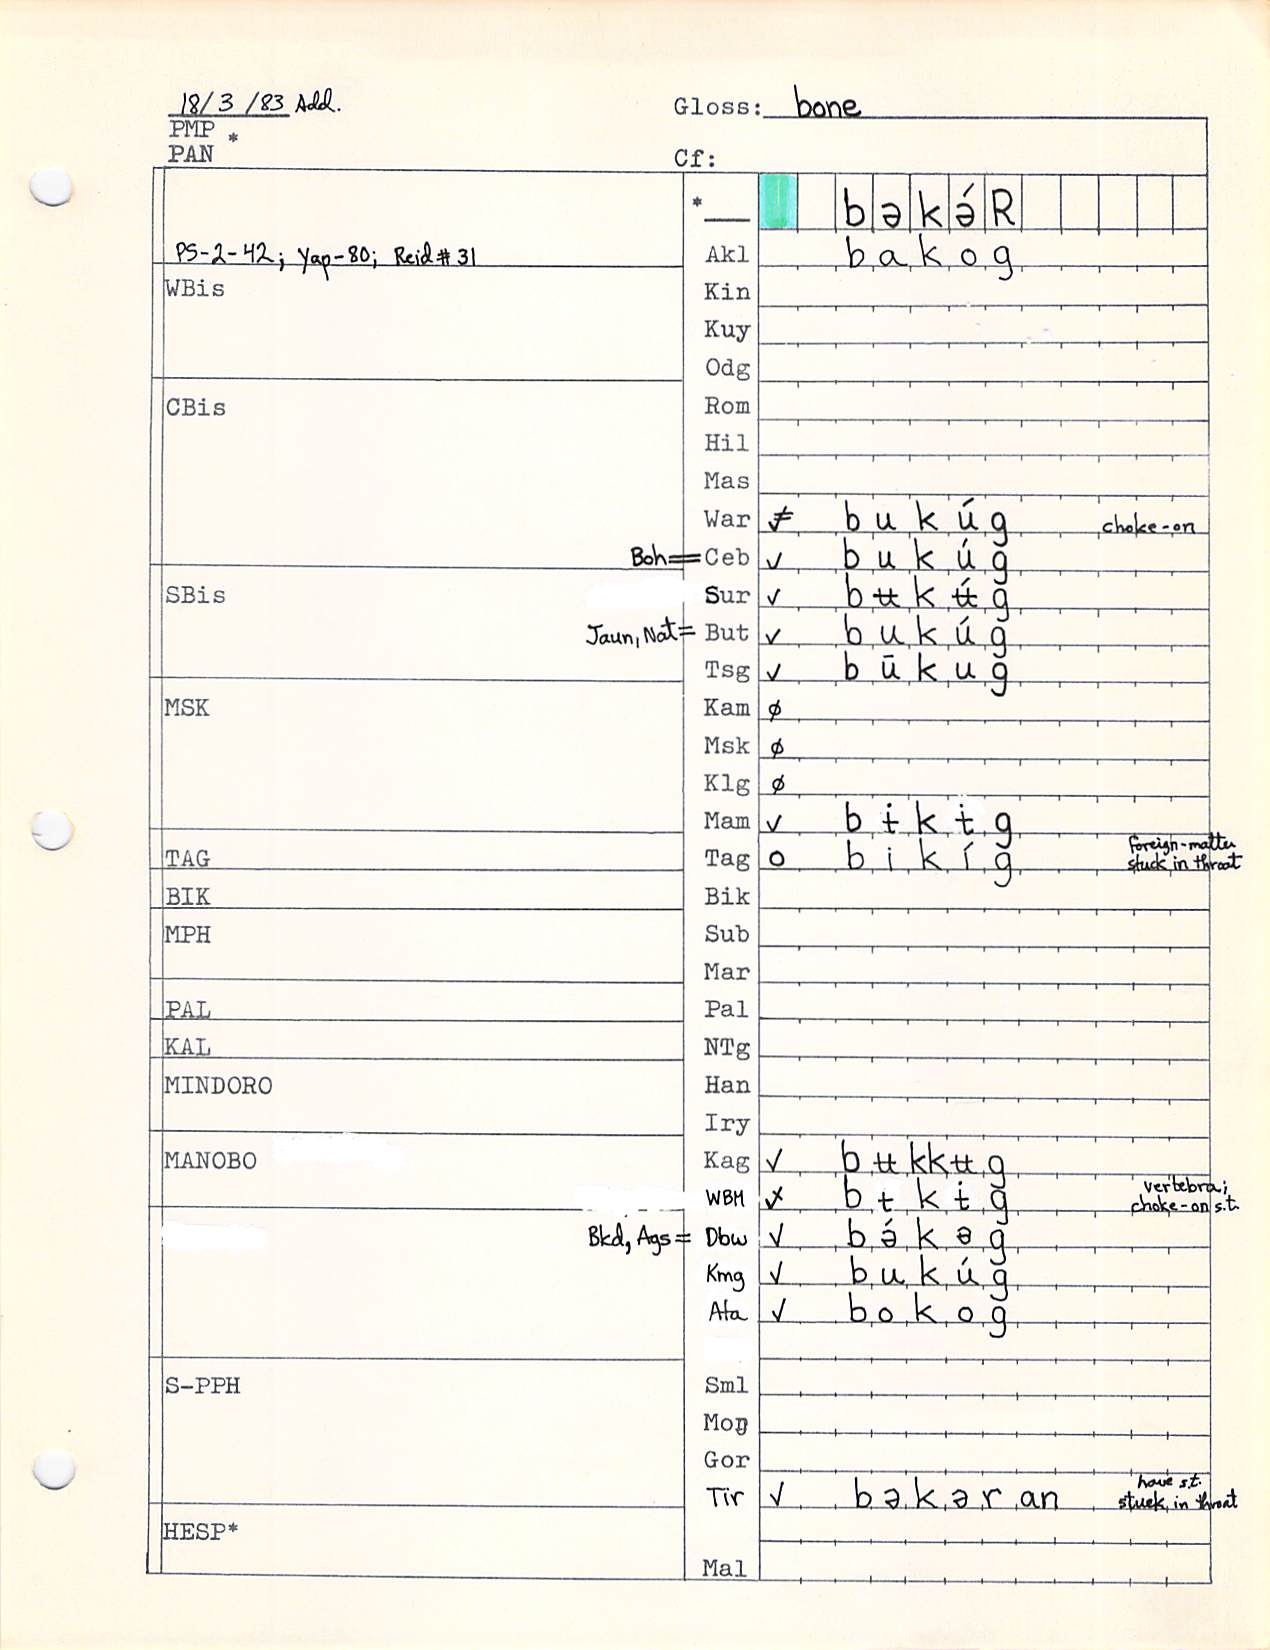 18/3/83 Add.
Gloss: bone
PMP *
PAN
Cf:
* bəkə́R
PS-2-42; Yap-80; Reid#31
Akl bakog
WBis
Kin
Kuy
Odg
CBis
Rom
Hil
Mas
War ≠ bukúg choke-on
Boh = Ceb ✓ bukúg
SBis
Sur ✓ bʉkʉ́g
Jaun, Nat = But ✓ bukúg
Tsg ✓ būkug
MSK
Kam ø
Msk ø
Klg ø
Mam ✓ bɨkɨg
TAG
Tag o bikíg foreign-matter stuck in throat
BIK
Bik
MPH
Sub
Mar
PAL
Pal
KAL
NTg
MINDORO
Han
Iry
MANOBO
Kag ✓ bʉkkʉg
WBM bɨkɨg vertebra; choke-on s.t.
Bkd, Ags = Dbw ✓ bə́kəg
Kmg ✓ bukúg
Ata ✓ bokog
S-PPH
Sml
Moŋ
Gor
Tir ✓ bəkəran have s.t. stuck in throat
HESP*
Mal